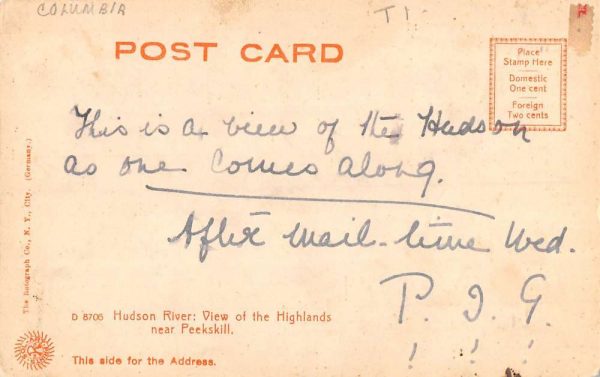 COLUMBIA
T1
POST CARD
Place
Stamp Here
Domestic
One cent
Foreign
Two cents
This is a view of the Hudson
as one comes along.
After mail-time Wed.
P. J. G.
! ! !
The Rotograph Co., N. Y., City. (Germany.)
D 8706 Hudson River: View of the Highlands
near Peekskill.
This side for the Address.